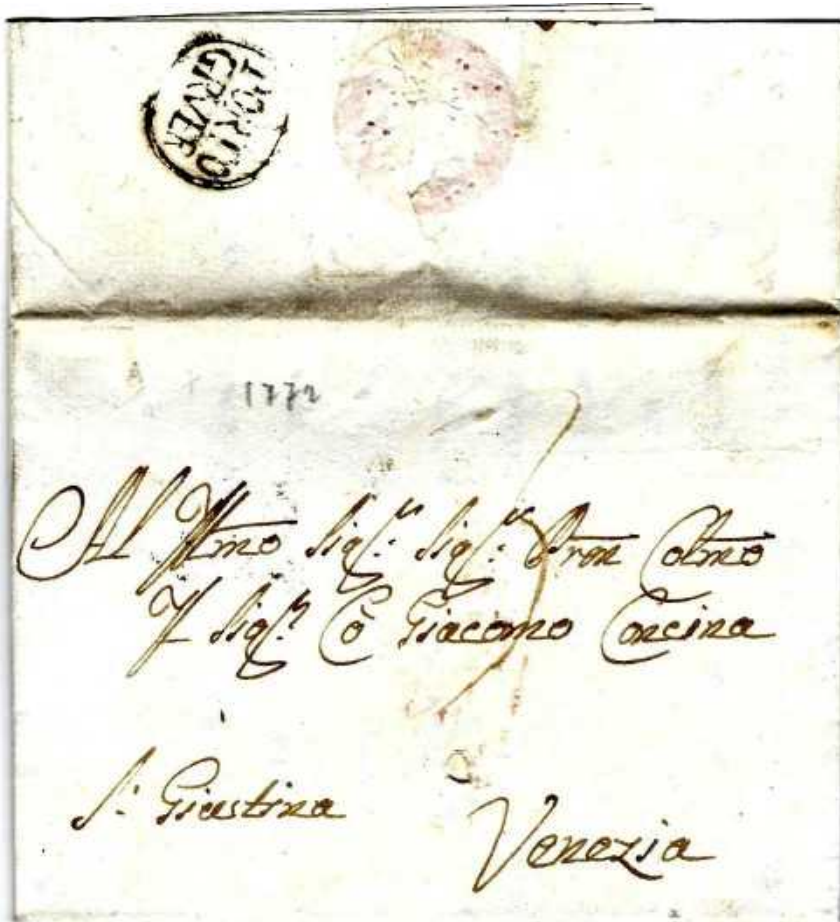 PORTO
GRVER
1772
Al Illmo Sigr. Sigr. Pron Colmo
Il Sigr. Co Giacomo Concina
S. Giustina
Venezia